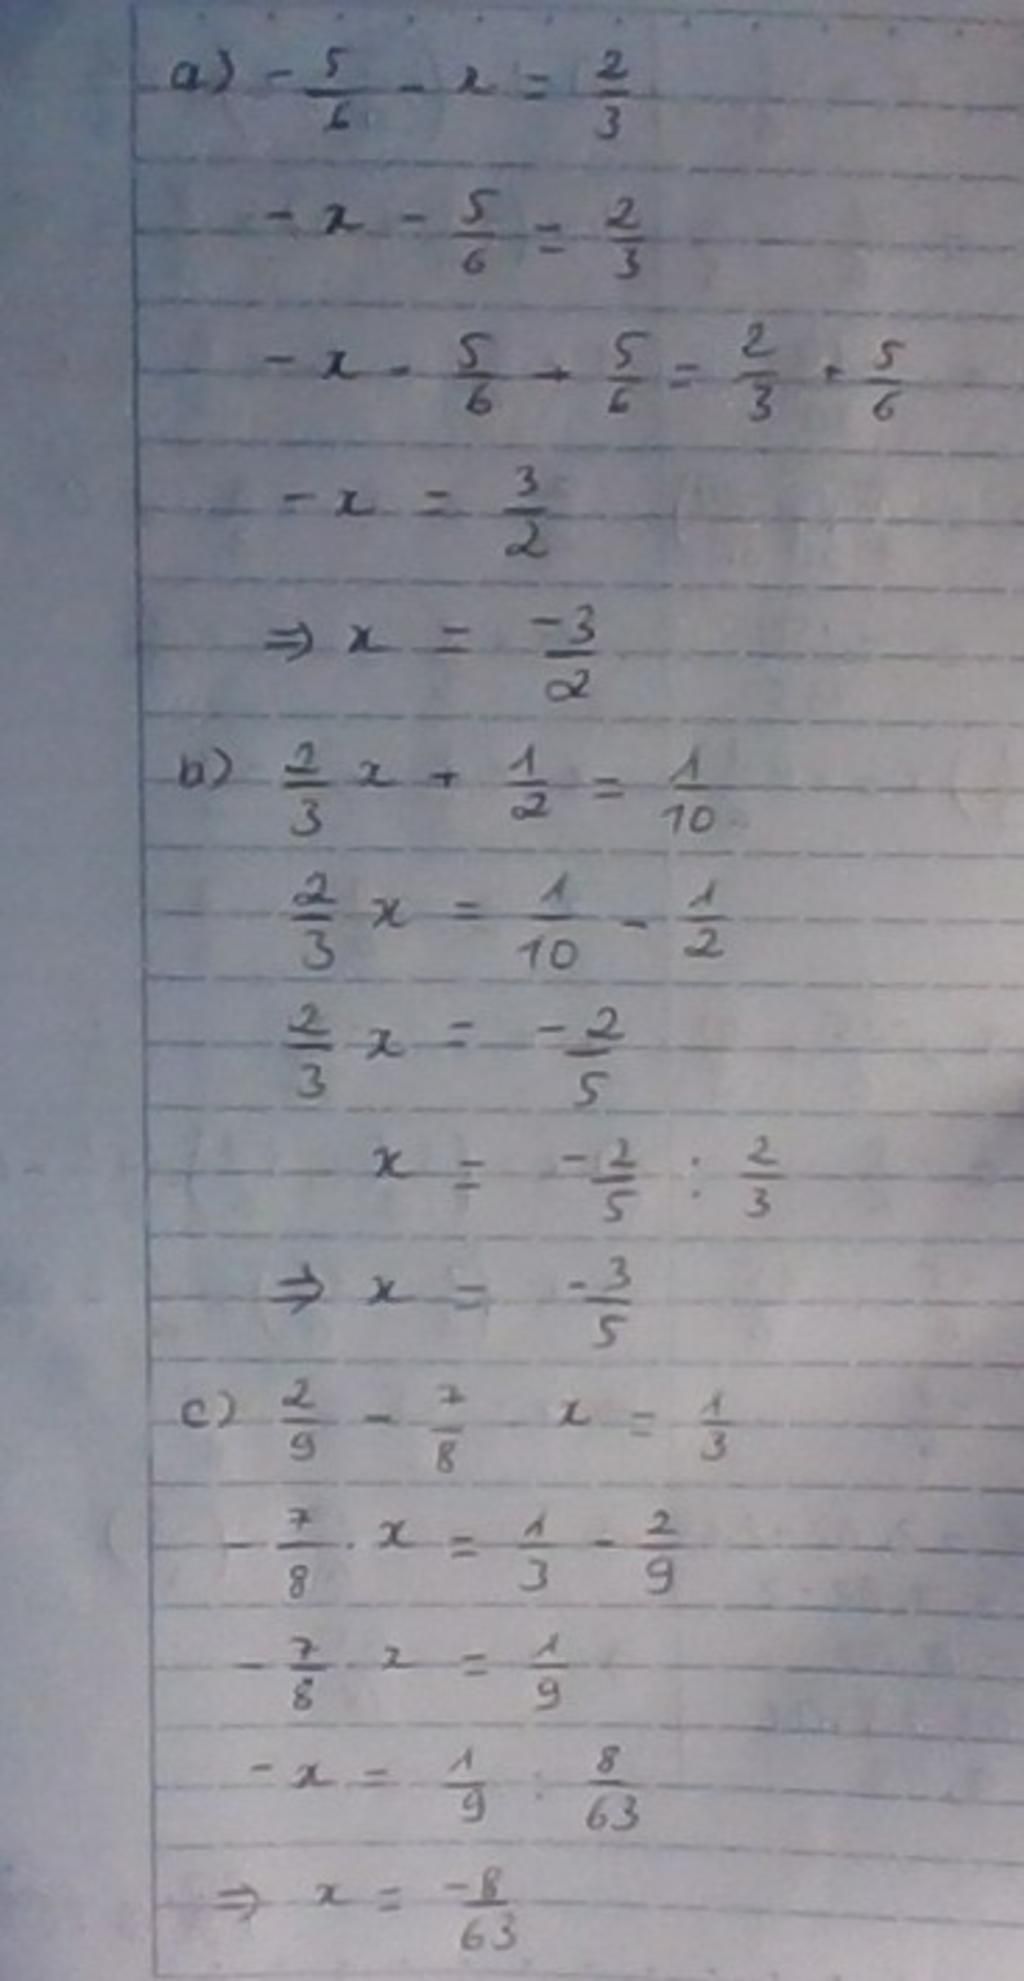 a) - 5/6 - x = 2/3
- x - 5/6 = 2/3
- x - 5/6 + 5/6 = 2/3 + 5/6
- x = 3/2
⇒ x = -3/2
b) 2/3 x + 1/2 = 1/10
2/3 x = 1/10 - 1/2
2/3 x = -2/5
x = -2/5 : 2/3
⇒ x = -3/5
c) 2/9 - 7/8 x = 1/3
- 7/8 . x = 1/3 - 2/9
- 7/8 . x = 1/9
- x = 1/9 : 8/63
⇒ x = -8/63